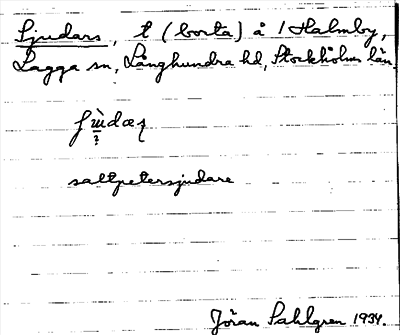 Sjudars, t (borta) å 1 Halmby,
Lagga sn, Långhundra hd, Stockholms län.
?
saltpetersjudare
Jöran Sahlgren 1934.